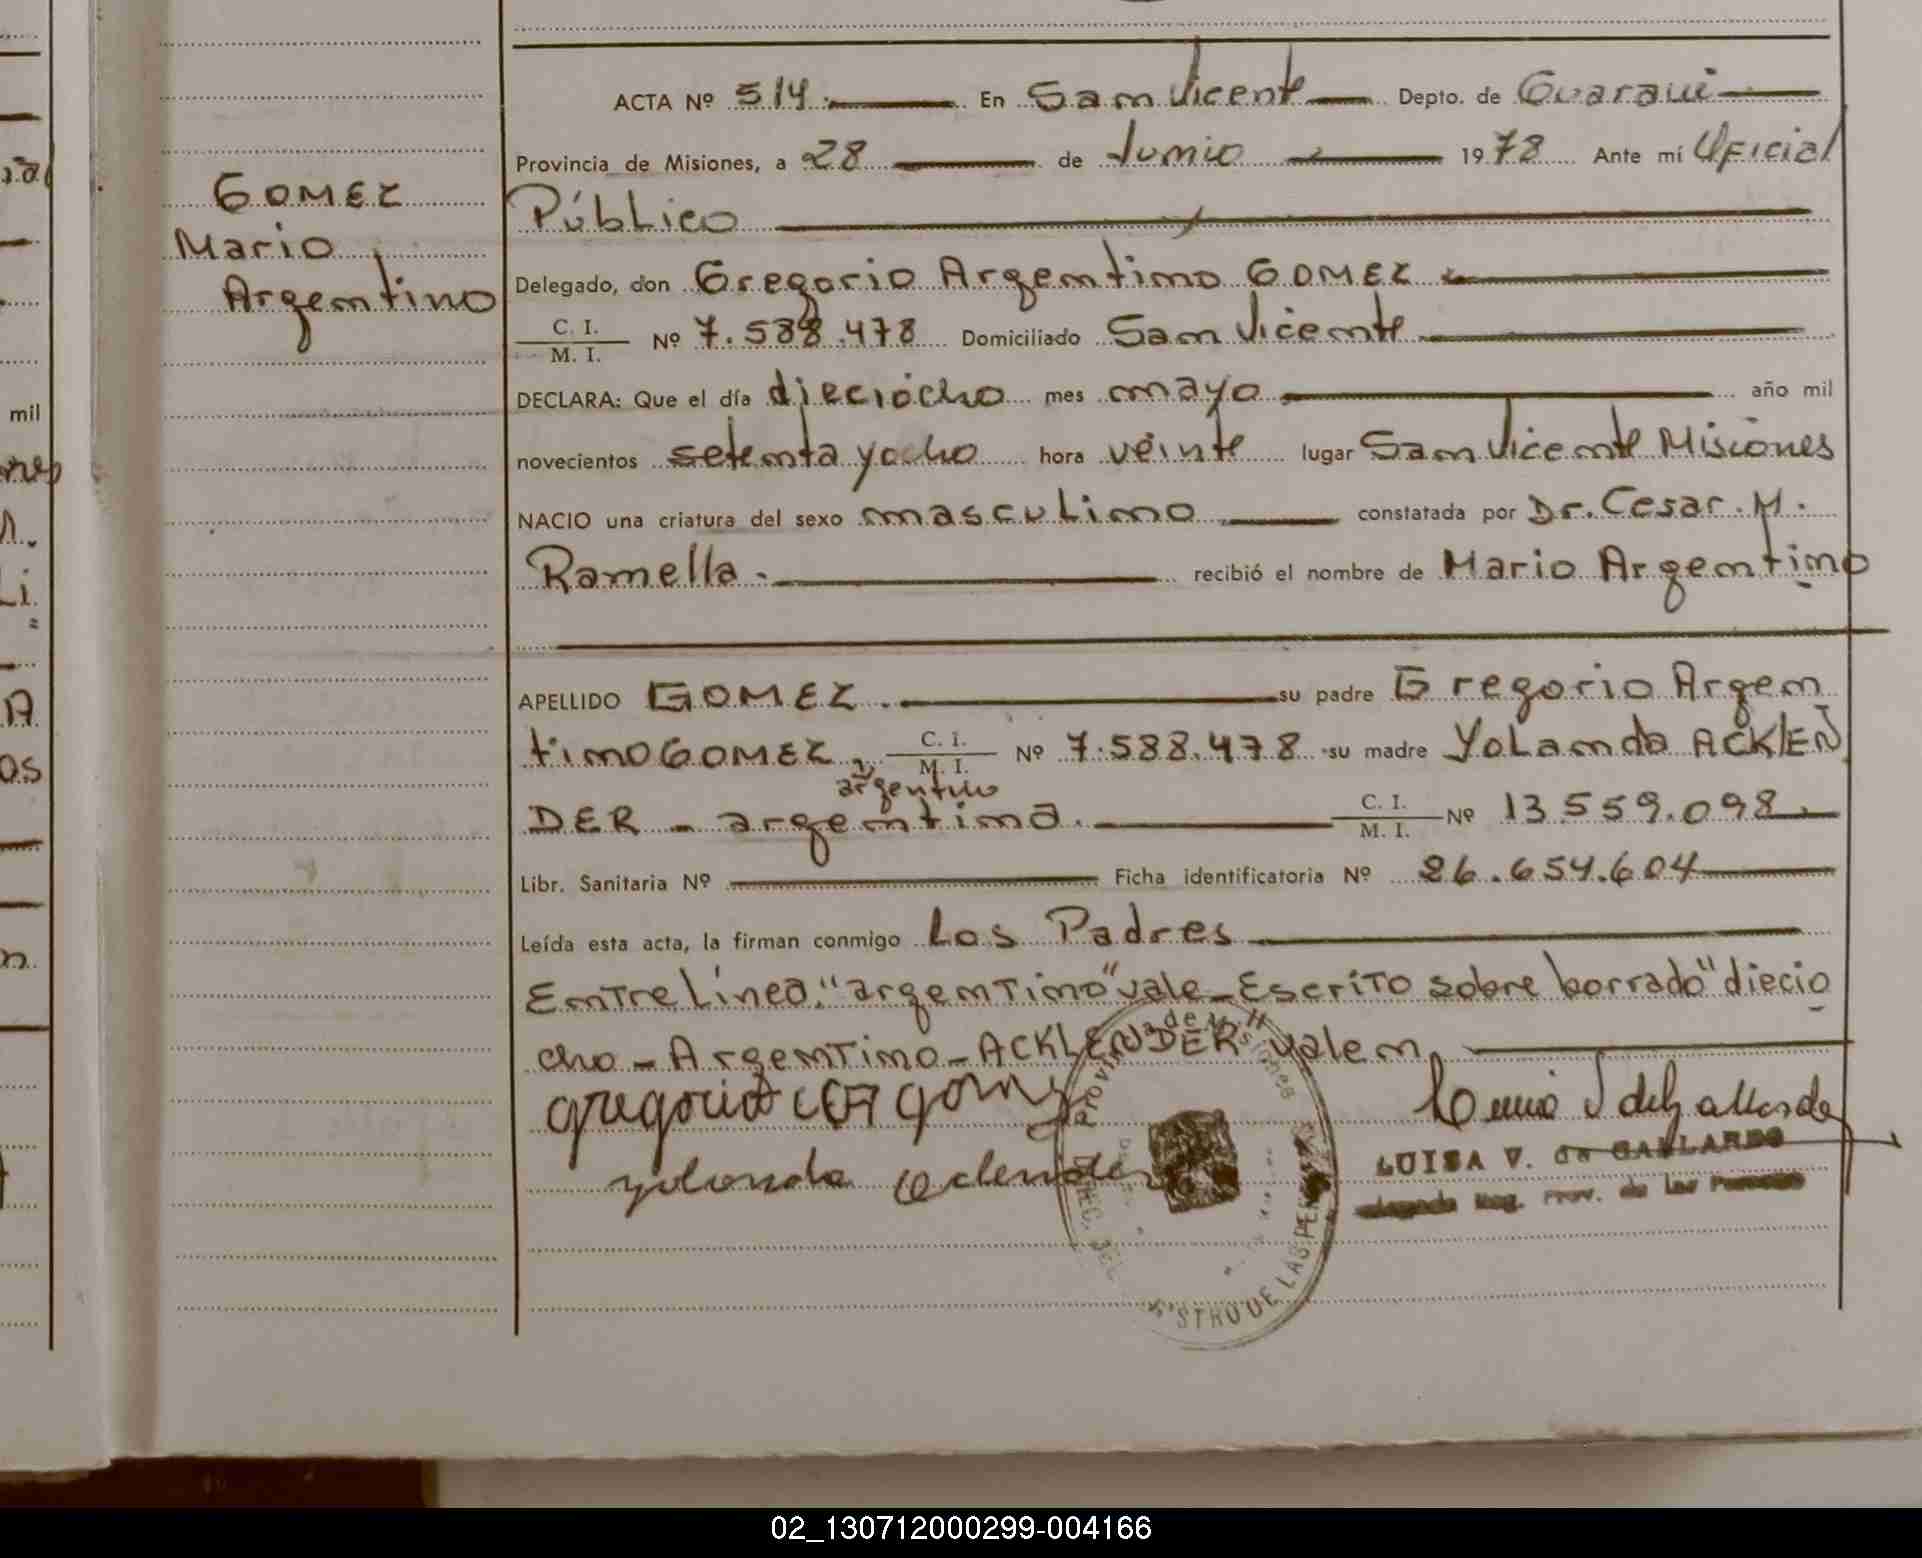 ACTA Nº 514. En San Vicente Depto. de Guaraní
Provincia de Misiones, a 28 de Junio 1978 Ante mí Oficial
Público
GOMEZ
Mario
Argentino
Delegado, don Gregorio Argentino GOMEZ
C. I.
M. I. Nº 7.588.478 Domiciliado San Vicente
DECLARA: Que el día dieciocho mes mayo año mil
novecientos setenta y ocho hora veinte lugar San Vicente Misiones
NACIO una criatura del sexo masculino constatada por Dr. Cesar. M.
Ramella. recibió el nombre de Mario Argentino
APELLIDO GOMEZ. su padre Gregorio Argen
tino GOMEZ, C. I. M. I. Nº 7.588.478 su madre Yolanda ACKLEN
argentino
DER - argentina. C. I. M. I. Nº 13.559.098
Libr. Sanitaria Nº Ficha identificatoria Nº 26.654.604
Leída esta acta, la firman conmigo Los Padres
Entre línea: "argentino" vale - Escrito sobre borrado "diecio
cho - Argentino - ACKLENDER" valen
LUISA V. de GALLARDO
Reg. Prov. de las Personas
Provincia de Misiones
REGISTRO DE LAS PERSONAS
mil
02_130712000299-004166